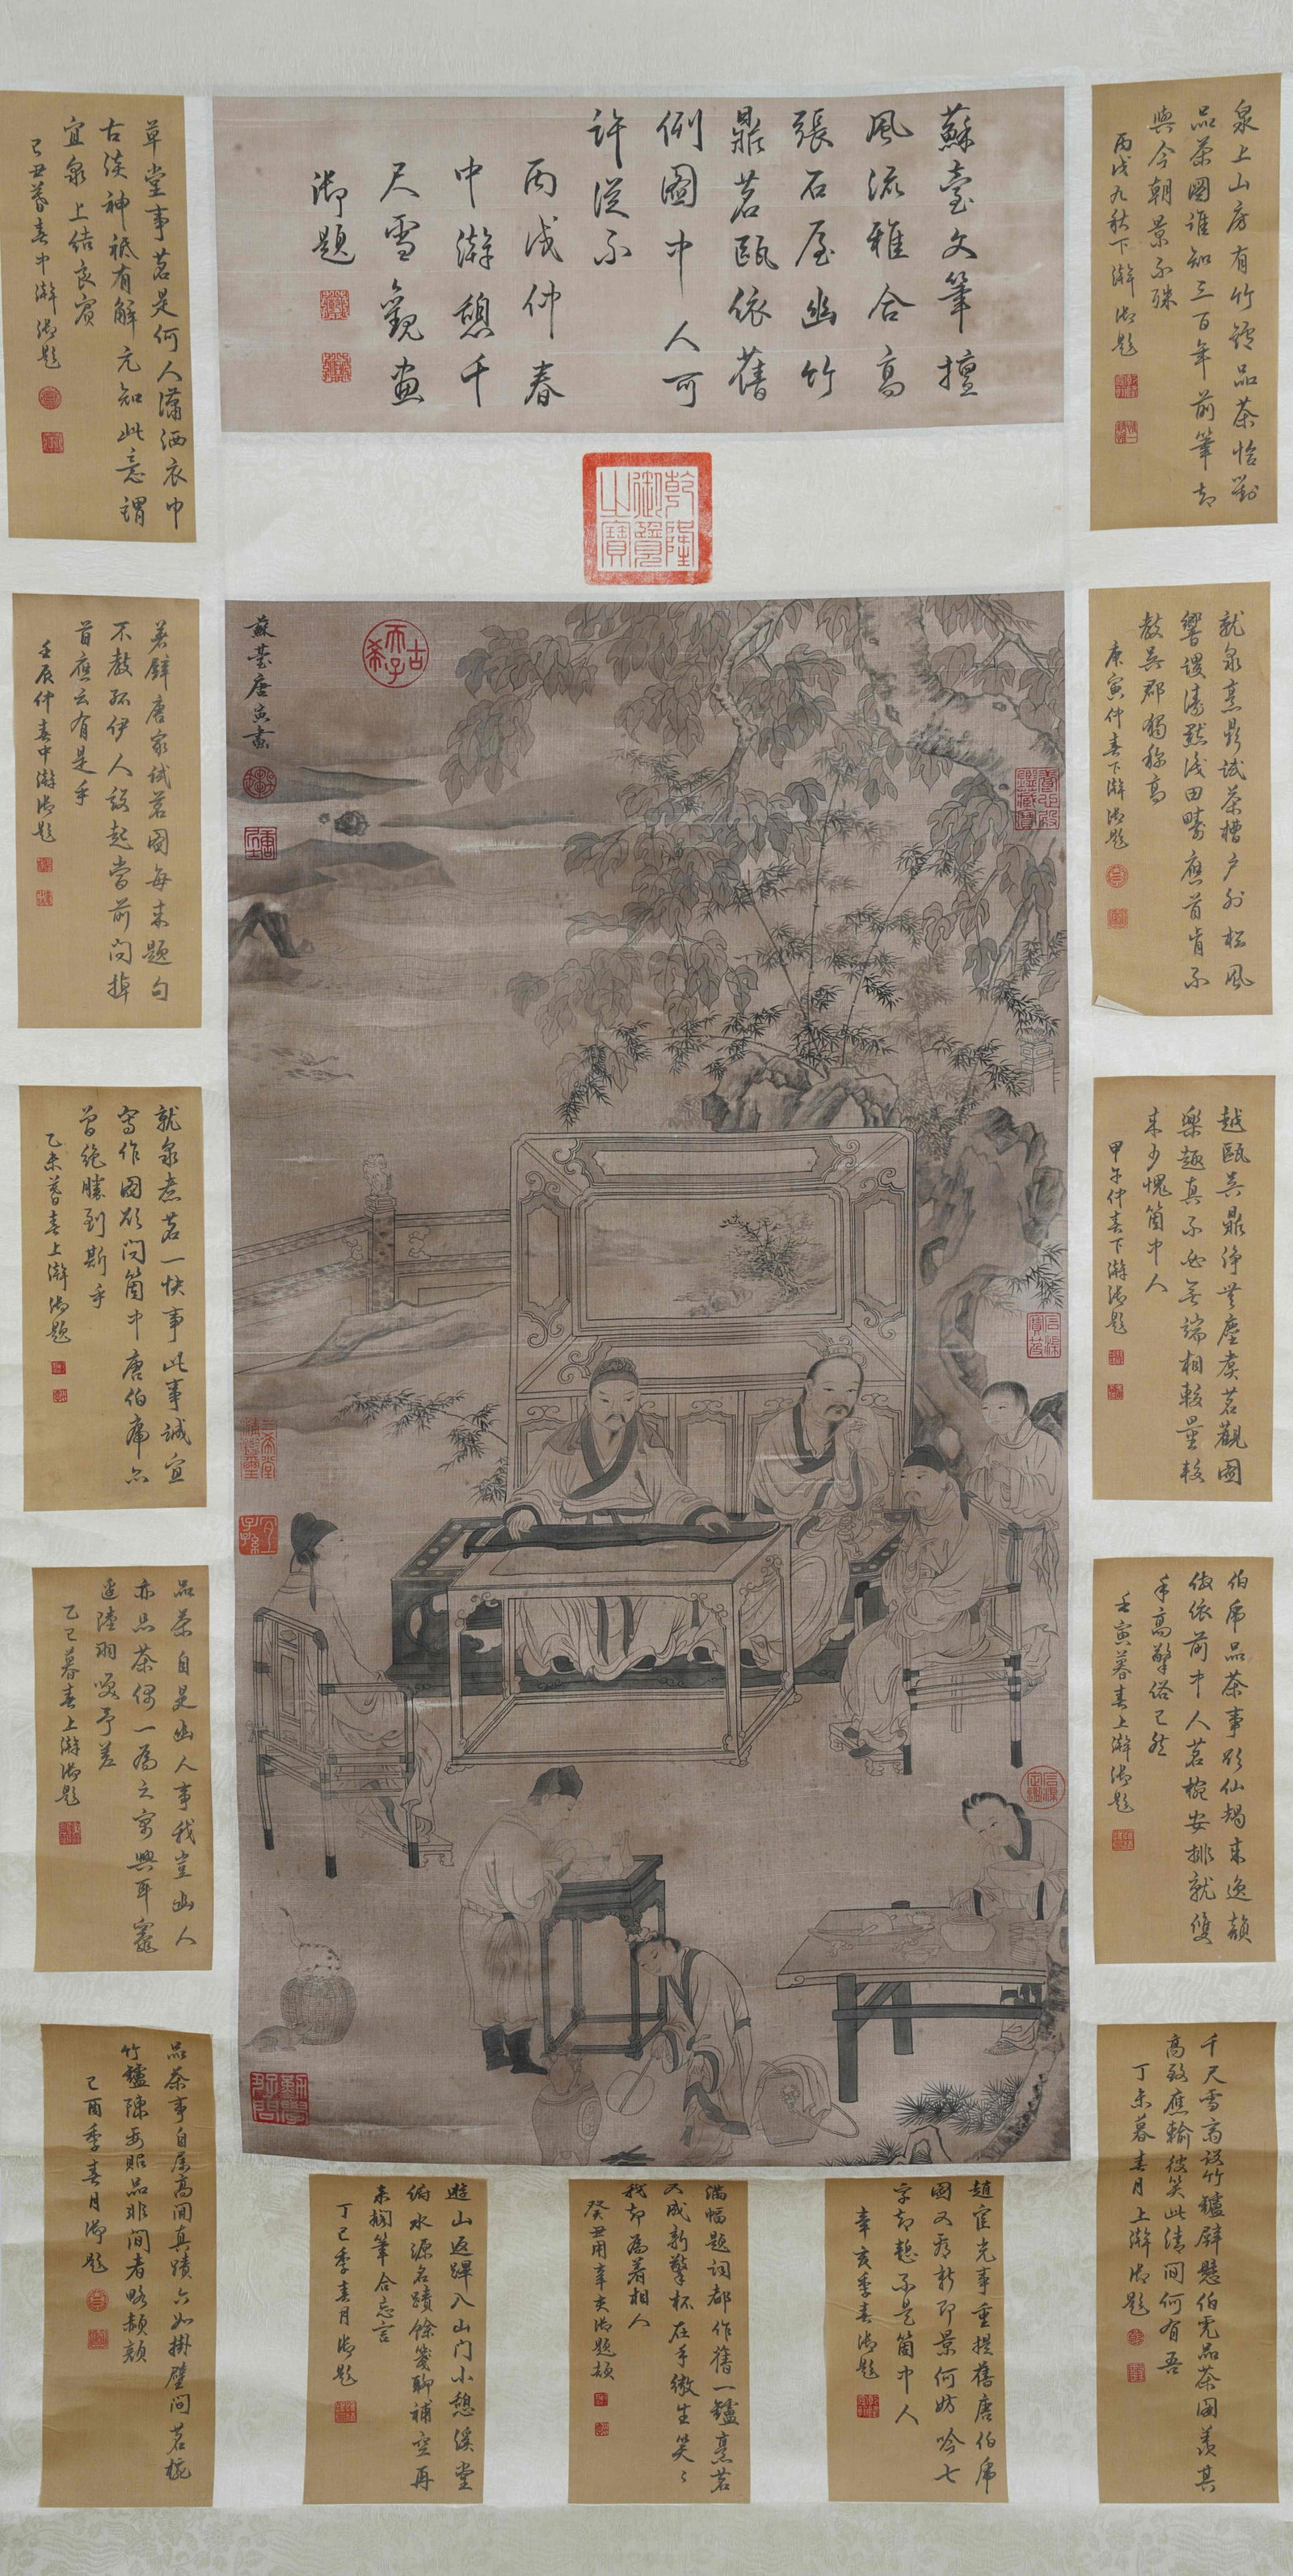 蘇臺文筆擅
風流雅合高
張石屋幽竹
鼎茗甌依舊
例圖中人可
許從不
丙戌仲春
中澣憩千
尺雪觀畫
御題
乾隆御覽之寶
蘇臺唐寅畫
古希天子
泉上山房有竹鑪品茶恰對
品茶圖誰知三百年前筆却
與今朝景不殊
丙戌九秋下澣御題
就泉烹鼎試茶槽戶外松風
響謖濤默淺田疇應首肯不
教吳郡獨稱高
庚寅仲春下澣御題
越甌吳鼎淨無塵煮茗觀圖
樂趣真不必無端相較量較
來少愧箇中人
甲午仲春下澣御題
伯虎品茶事欲仙朅來逸韻
倣依前中人茗椀安排就雙
手高擎俗已然
壬寅暮春上澣御題
千尺雪齋設竹鑪壁懸伯虎品茶圖羨其
高致應輸彼笑此清閒何有吾
丁未暮春月上澣御題
草堂事茗是何人瀟洒衣巾
古淡神祗有解元知此意謂
宜泉上結良賓
己丑暮春中澣御題
著壁唐家試茗圖每來題句
不教孤伊人設起當前問掉
首應云有是乎
壬辰仲春中澣御題
就泉煮茗一快事此事誠宜
寫作圖欲問箇中唐伯虎亦
曾絶勝到斯乎
乙未暮春上澣御題
品茶自是幽人事我豈幽人
亦品茶偶一為之寓興耳竈
邊陸羽笑予差
乙巳暮春上澣御題
品茶事自屬高閒真蹟六如掛壁間茗椀
竹鑪陳妥貼品非閒者略赧顏
己酉季春月御題
趙宦光事重提舊唐伯虎
圖又看新即景何妨吟七
字却慙不是箇中人
辛亥季春御題
滿幅題詞都作舊一鑪烹茗
又成新擎杯在手微生笑笑
我却為著相人
癸丑用辛亥御題韻
遊山返蹕入山門小憩溪堂
俯水源名蹟餘箋聊補空再
來擱筆合忘言
丁巳季春月御題